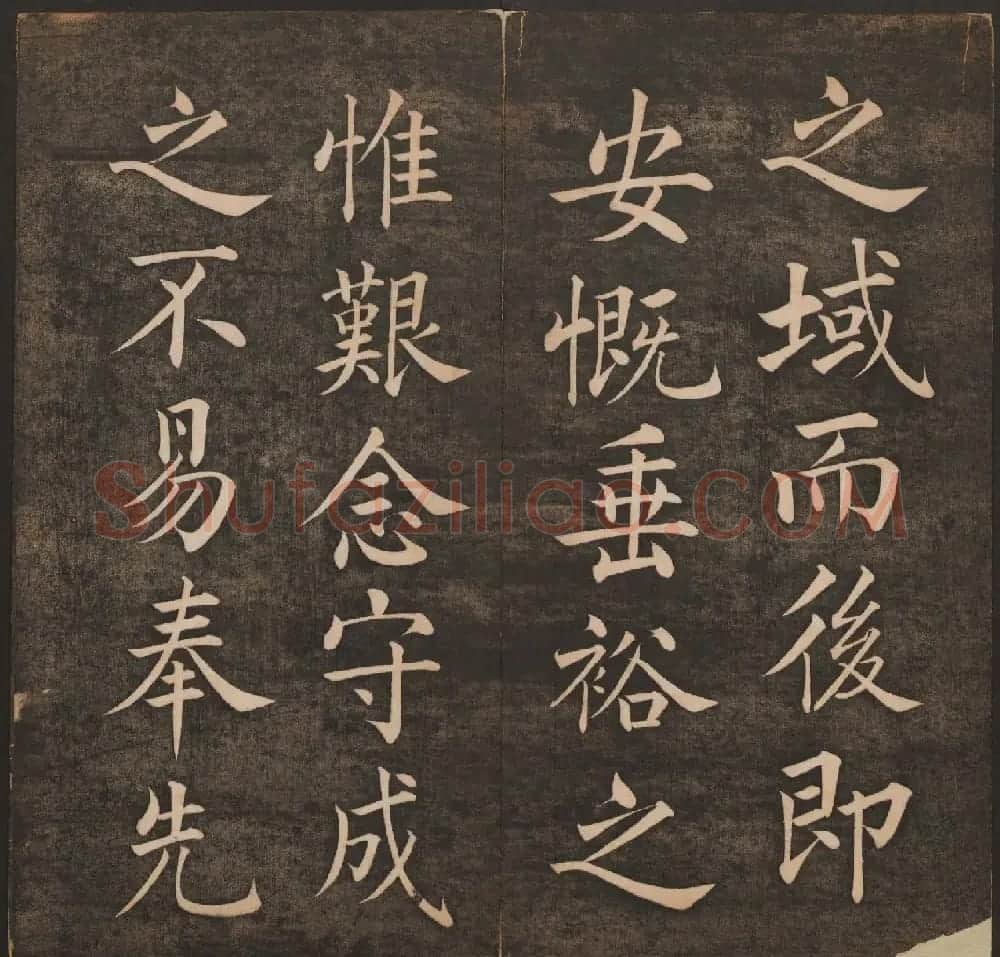 之域而後即
安慨垂裕之
惟艱念守成
之不易奉先
Shufaziliao.COM